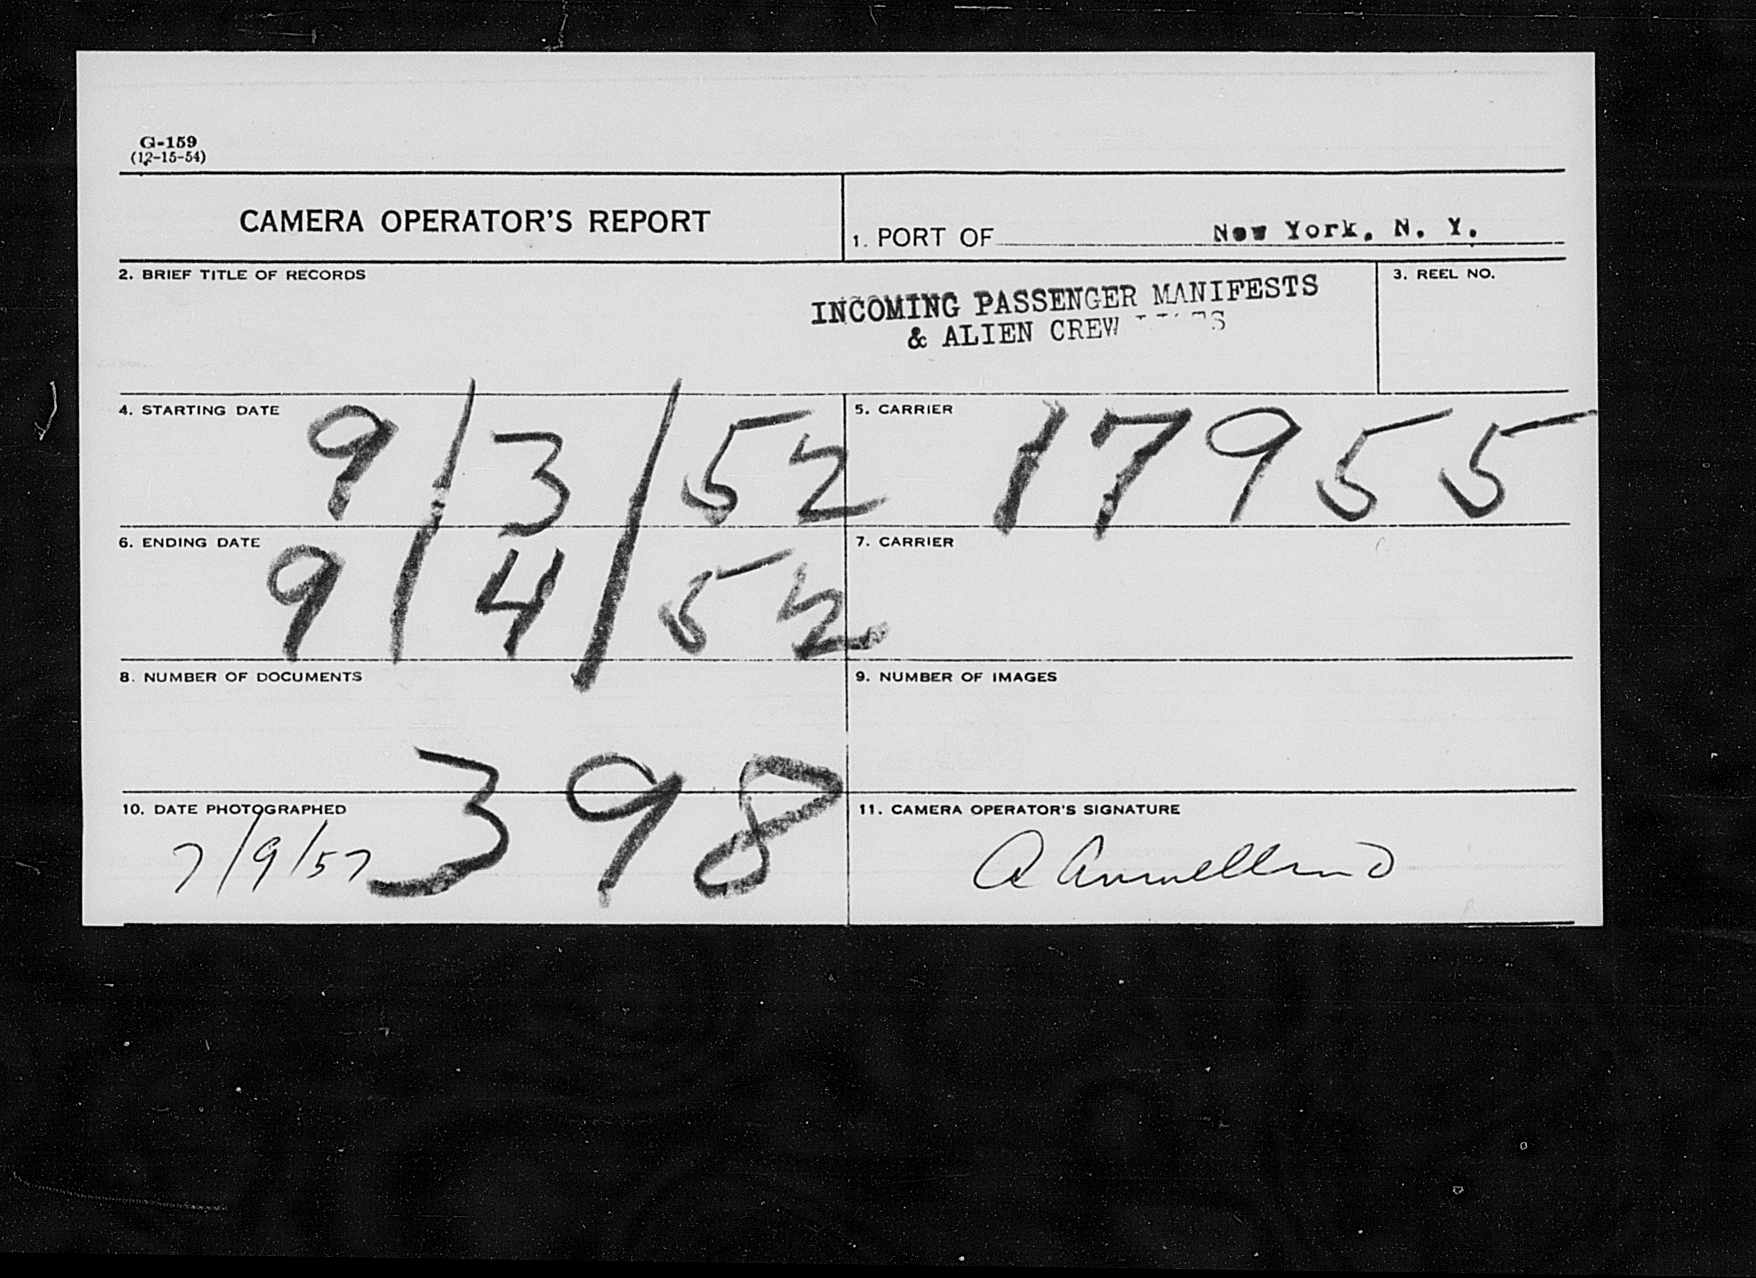 G-159
(12-15-54)
CAMERA OPERATOR'S REPORT
1. PORT OF New York, N. Y.
2. BRIEF TITLE OF RECORDS
INCOMING PASSENGER MANIFESTS
& ALIEN CREW
3. REEL NO.
4. STARTING DATE 9/3/52
5. CARRIER 17955
6. ENDING DATE 9/4/52
7. CARRIER
8. NUMBER OF DOCUMENTS
398
9. NUMBER OF IMAGES
10. DATE PHOTOGRAPHED
7/9/57
11. CAMERA OPERATOR'S SIGNATURE